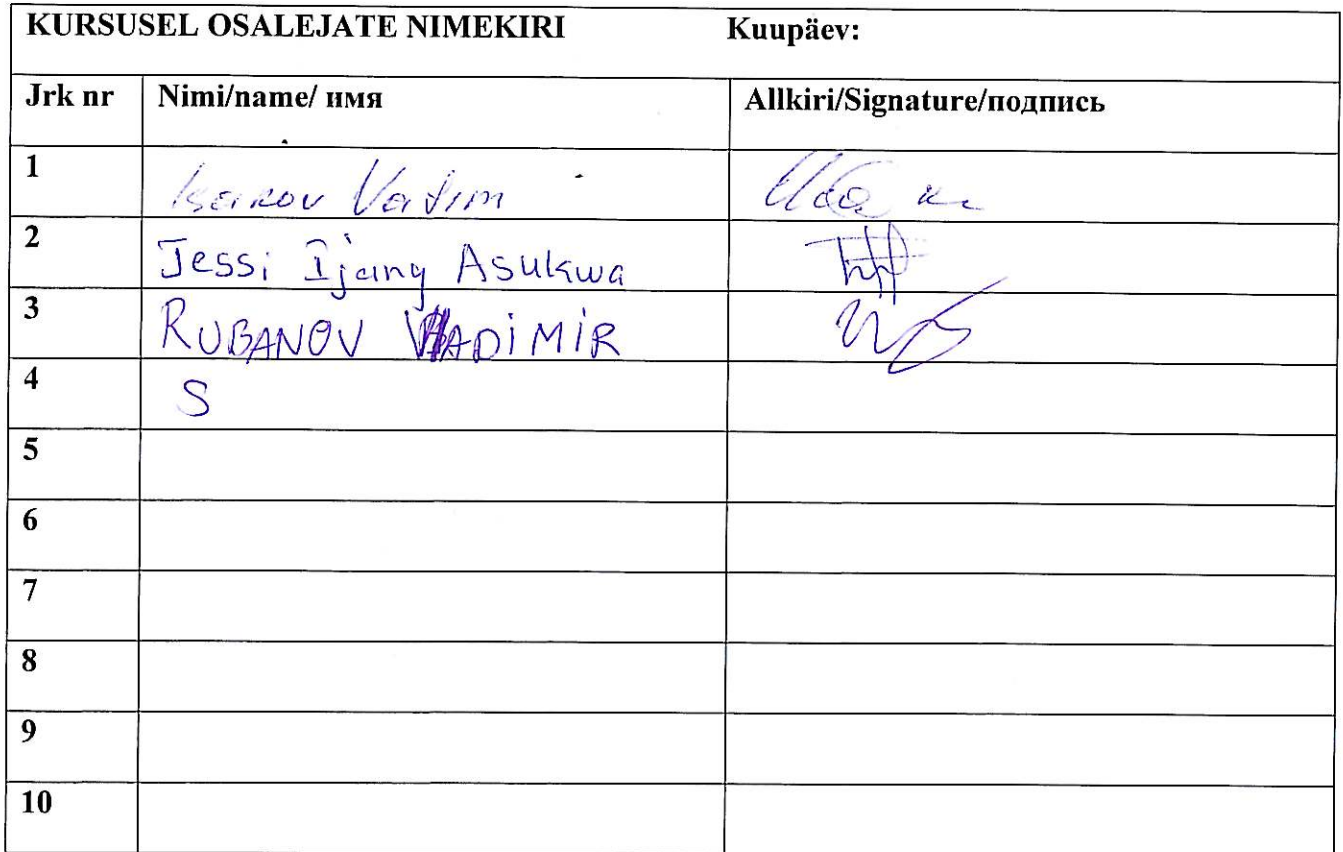 KURSUSEL OSALEJATE NIMEKIRI Kuupäev:
Jrk nr Nimi/name/ имя Allkiri/Signature/подпись
1 Isakov Vadim
2 Jessi Ijang Asukwa
3 RUBANOV VLADIMIR
4 S
5
6
7
8
9
10